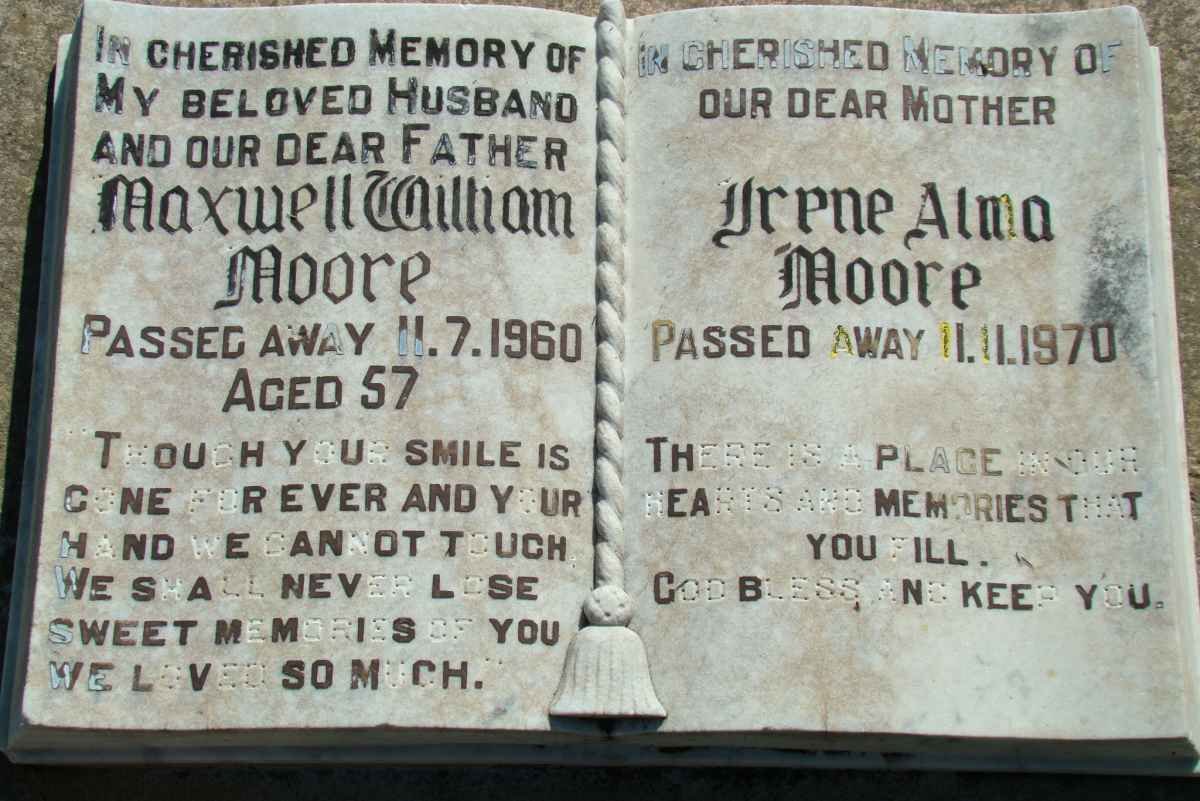 In cherished Memory of
My beloved Husband
and our dear Father
Maxwell William
Moore
Passed away 11.7.1960
Aged 57
"Though your smile is
gone for ever and your
hand we cannot touch,
We shall never lose
sweet memories of you
we loved so much."
In cherished Memory of
our dear Mother
Irene Alma
Moore
Passed away 11.11.1970
There is a place in our
hearts and memories that
you fill.
God bless and keep you.